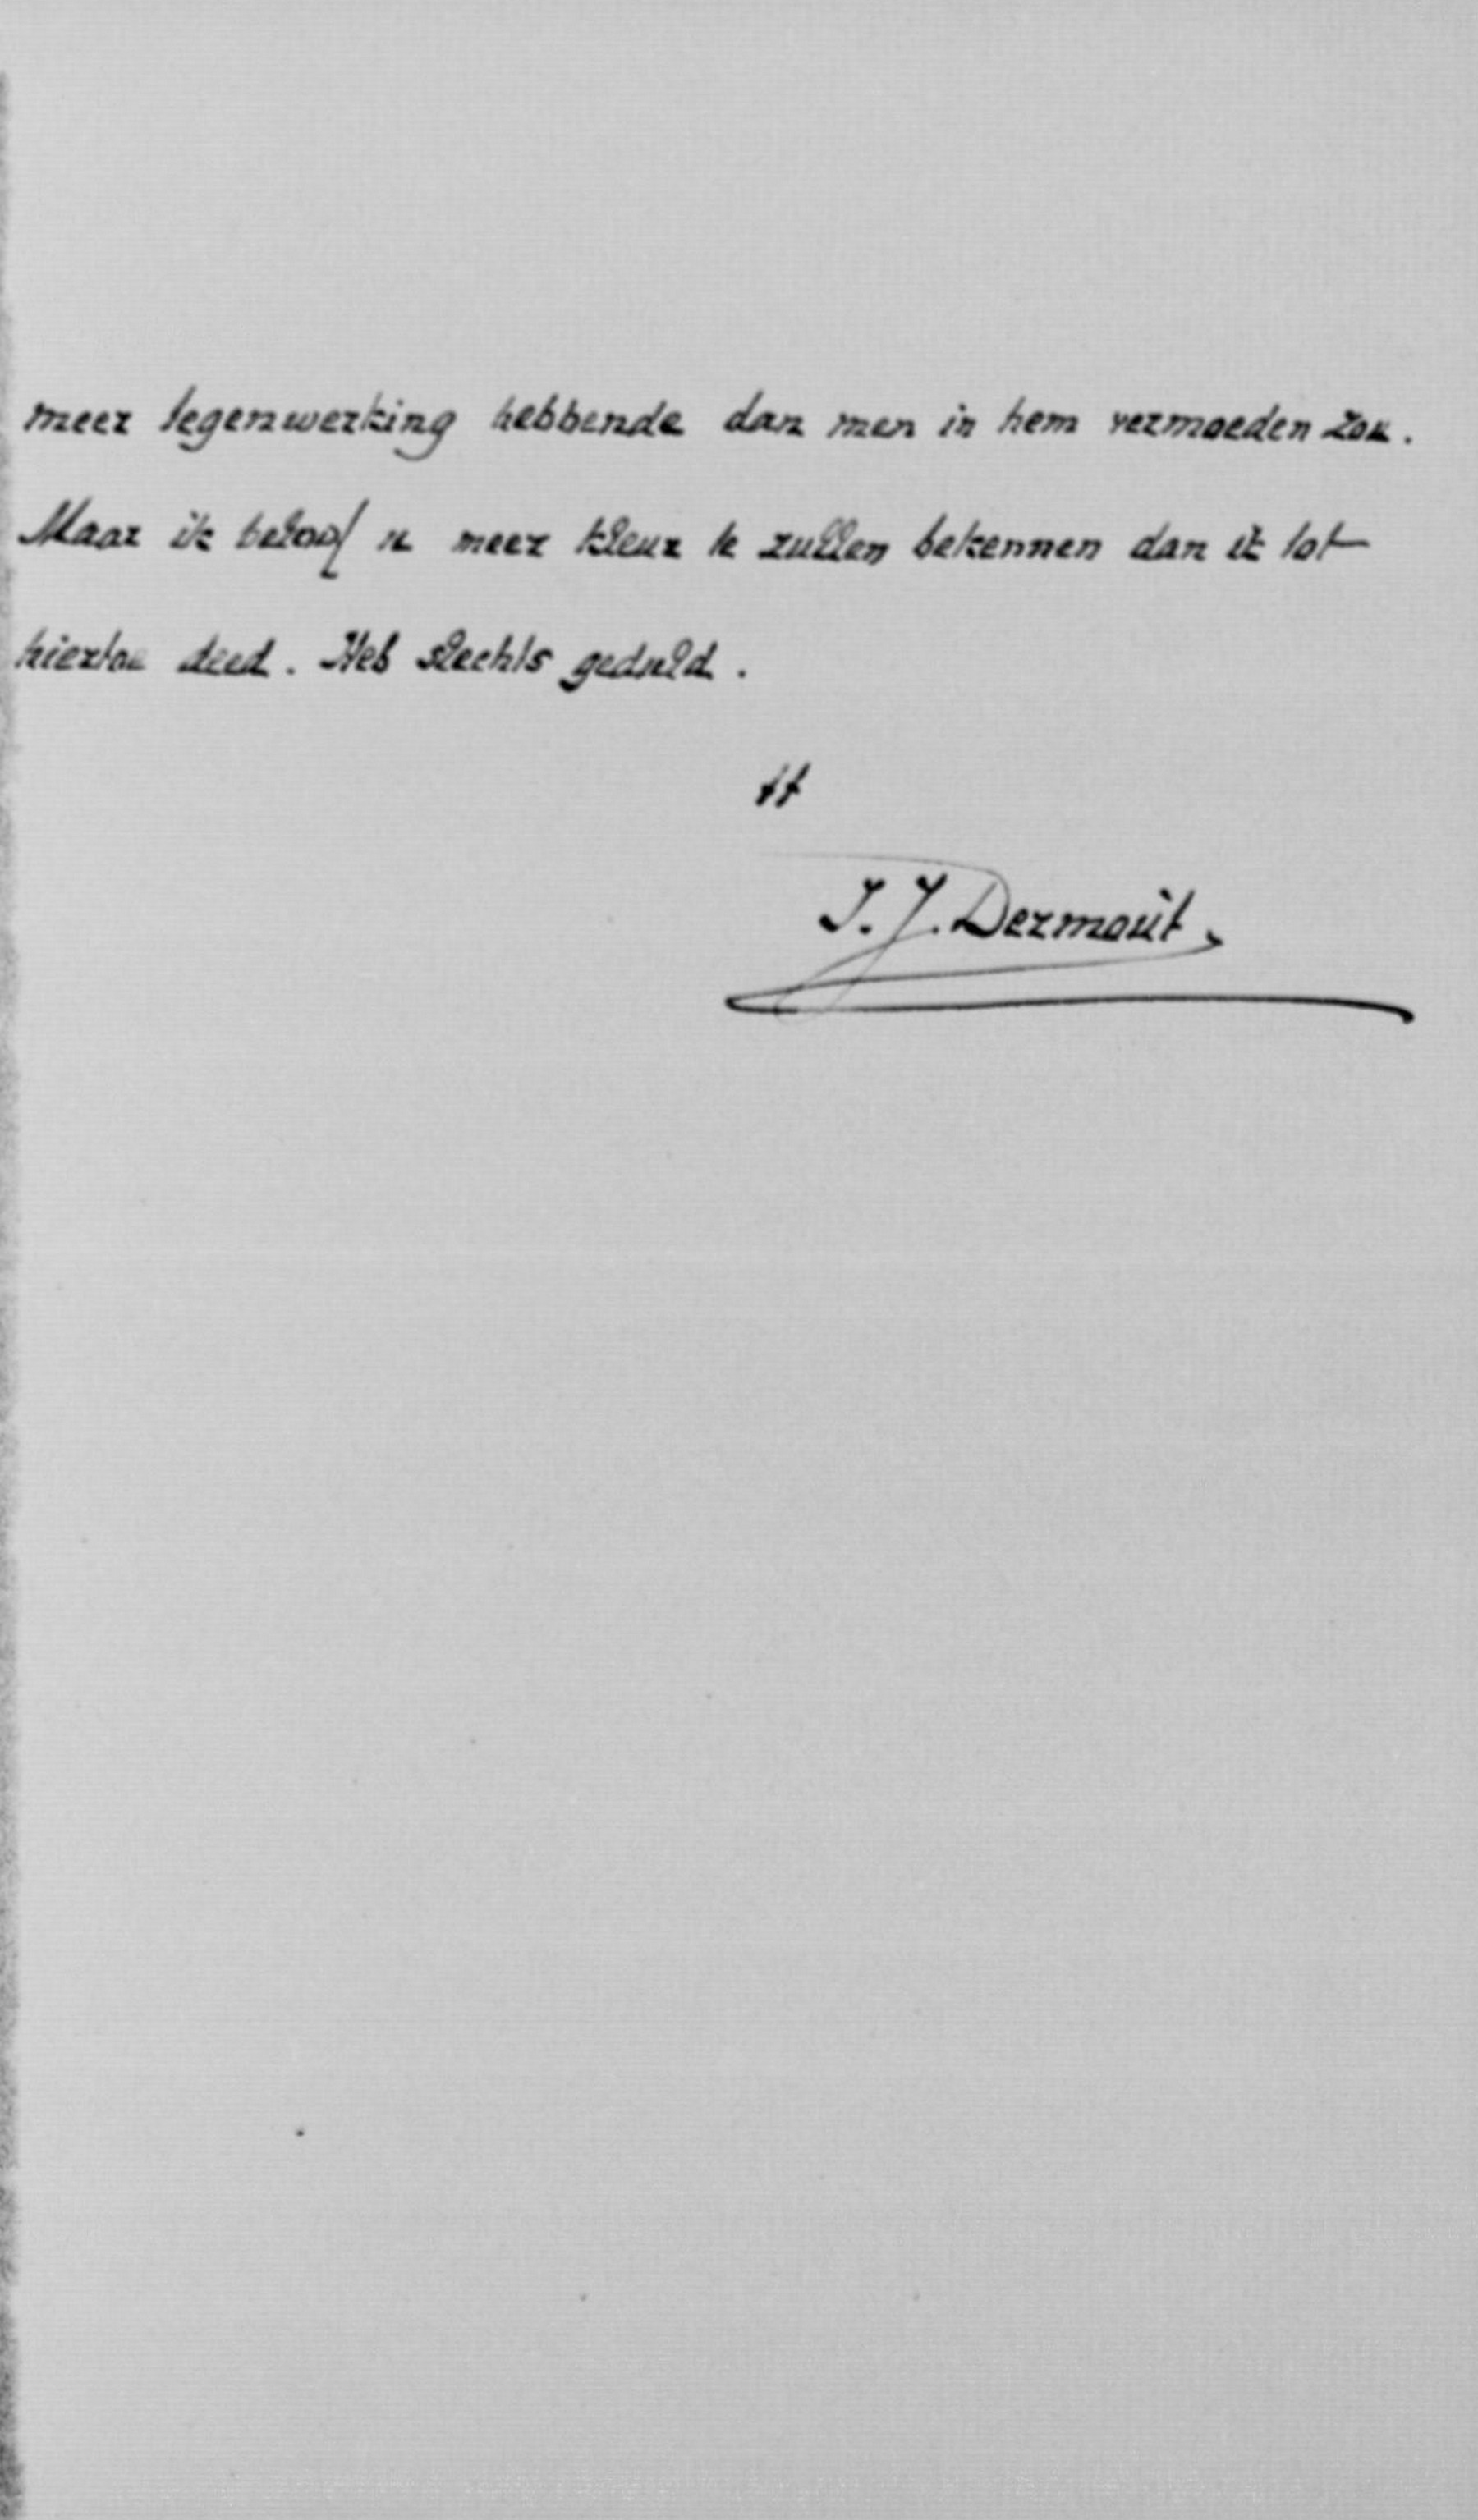 meer tegenwerking hebbende dan men in hem vermoeden zou.
Maar ik beloof u meer kleur te zullen bekennen dan ik tot
hiertoe deed. Heb slechts geduld.
tt
J. J. Dermoût